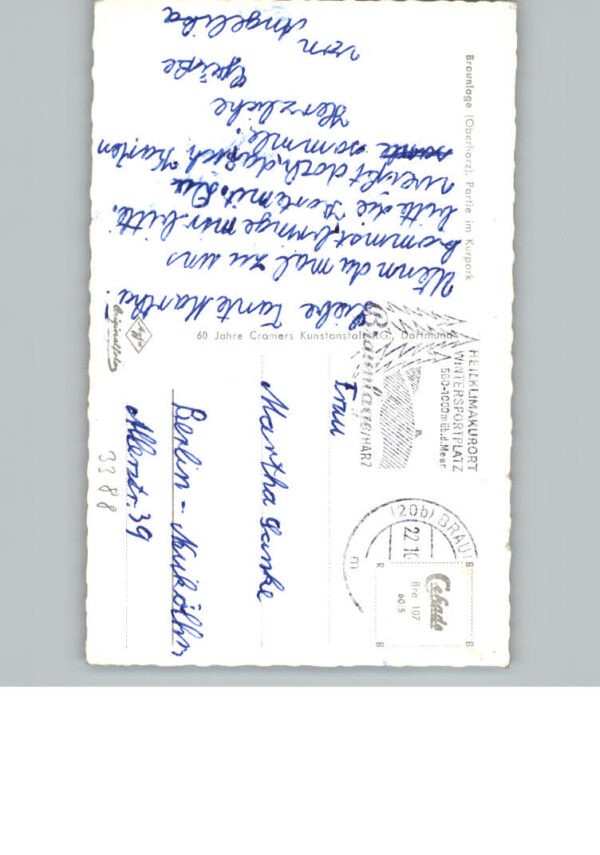 Braunlage (Oberharz). Partie im Kurpark
Liebe Tante Martha!
Wenn du mal zu uns
kommst bringe mir bitte
bitte die Karte mit. Du
weißt doch, das ich Karten
sammle.
Herzliche
Grüße
von
Angelika
60 Jahre Cramers Kunstanstalt KG, Dortmund
Agfa
Originalfoto
HEILKLIMAKURORT
WINTERSPORTPLATZ
500-1000 m üb. d. Meer
Braunlage/HARZ
(20b) BRAU
22.10
m
Cekade
Bra 107
60 S
R
R
B
B
Frau
Martha Ganke
Berlin - Neukölln
Allerstr. 39
3388